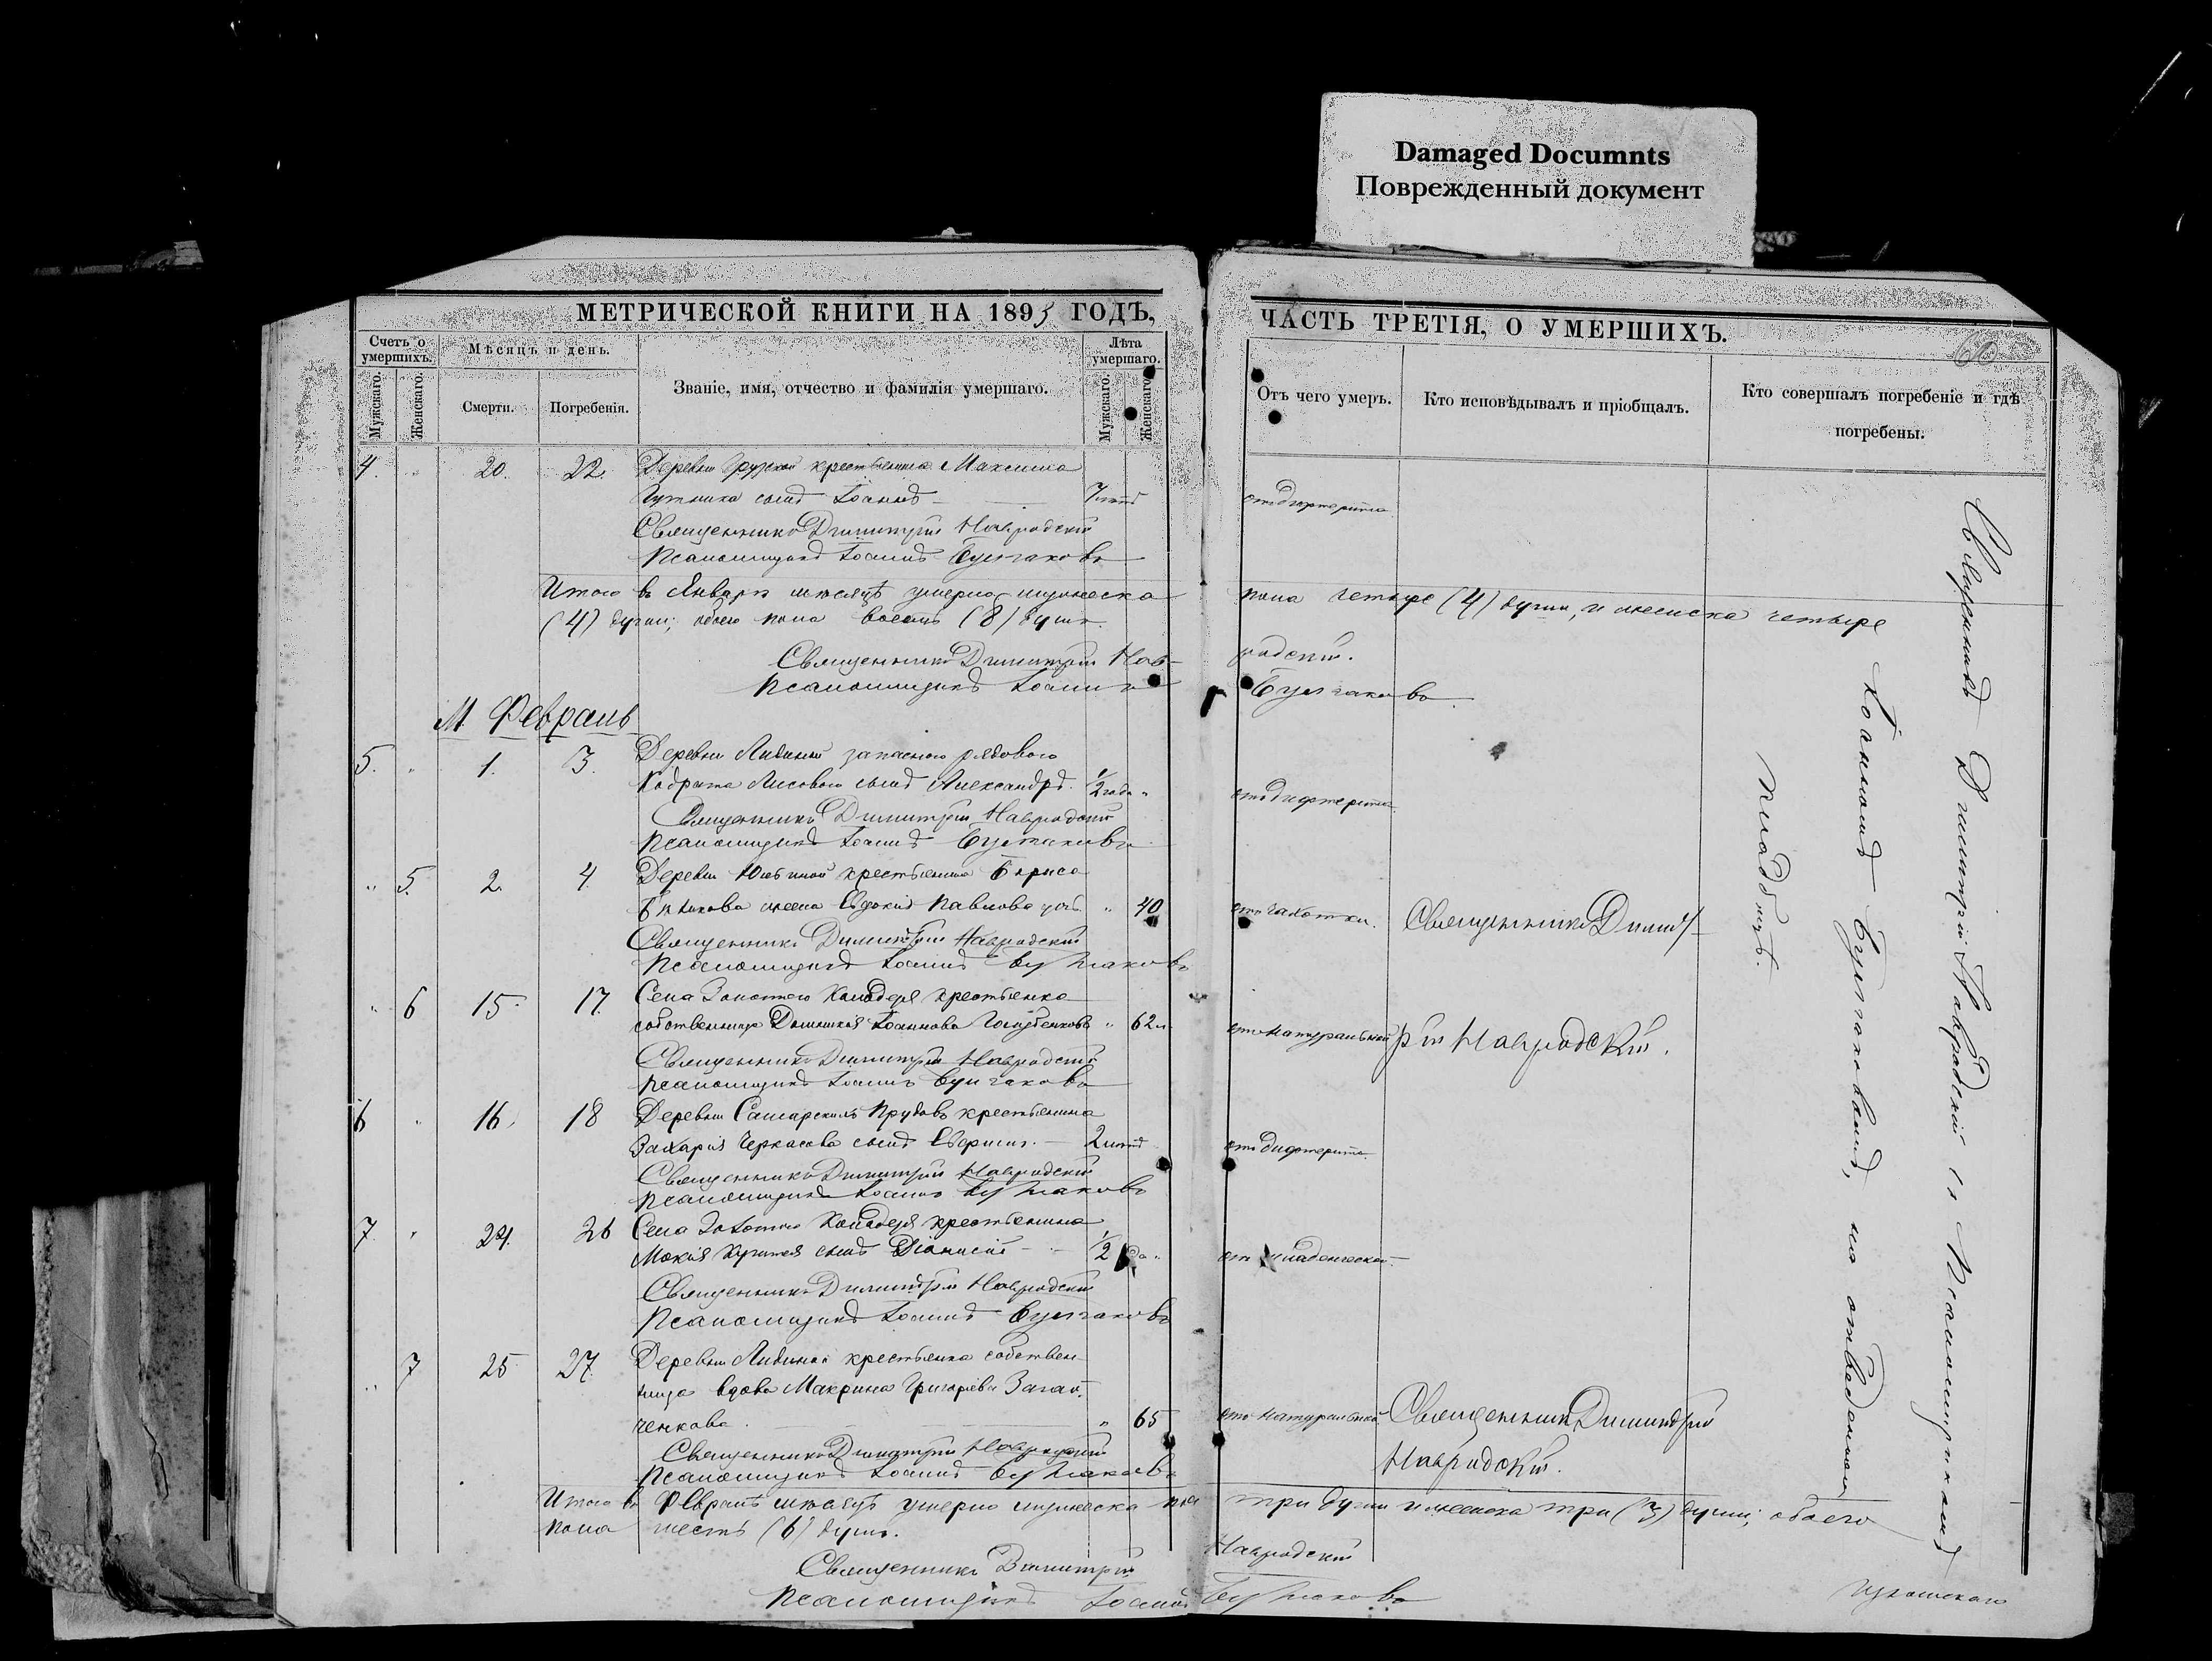 Damaged Documnts
Поврежденный документ
МЕТРИЧЕСКОЙ КНИГИ НА 1895 ГОДЪ,
Счетъ о умершихъ.
Мѣсяцъ и день.
Званіе, имя, отчество и фамилія умершаго.
Лѣта умершаго.
Мужскаго.
Женскаго.
Смерти.
Погребенія.
Мужскаго.
Женскаго.
4. " 20. 22. Деревни Грузкой крестьянина Максима
сынъ Іоаннъ 7 лѣтъ
Священникъ Димитрій Навродскій
Псаломщикъ Іоаннъ Булгаковъ
Итого въ Январѣ мѣсяцѣ умерло мужеска
(4) души; обоего пола восемь (8) душъ.
Священникъ Димитрій Нав-
Псаломщикъ Іоаннъ
М. Февраль
5. " 1. 3. Деревни запаснаго рядового
Кодрата Лисового сынъ Александръ. 1/2 года "
Священникъ Димитрій Навродскій
Псаломщикъ Іоаннъ Булгаковъ
" 5. 2. 4. Деревни крестьянина Бориса
жена Евдокія Павлова " 40
Священникъ Димитрій Навродскій
Псаломщикъ Іоаннъ Булгаковъ
" 6 15 17. Села Золотого Колодезя крестьянка
собственница Іоаннова " 62
Священникъ Димитрій Навродскій
Псаломщикъ Іоаннъ Булгаковъ
6 " 16. 18 Деревни Самарскихъ Прудовъ крестьянина
Захарія Черкасова сынъ 2 лѣтъ
Священникъ Димитрій Навродскій
Псаломщикъ Іоаннъ Булгаковъ
7. " 24. 26 Села Золотого Колодезя крестьянина
Мокія сынъ Діонисій 1/2 "
Священникъ Димитрій Навродскій
Псаломщикъ Іоаннъ Булгаковъ
" 7 25 27. Деревни крестьянка собствен-
ница вдова Макрина Григорьева
ченкова. " 65
Священникъ Димитрій Навродскій
Псаломщикъ Іоаннъ Булгаковъ
Итого въ Февралѣ мѣсяцѣ умерло мужеска
пола шесть (6) душъ.
Священникъ Димитрій
Псаломщикъ Іоаннъ
ЧАСТЬ ТРЕТІЯ, О УМЕРШИХЪ.
Отъ чего умеръ.
Кто исповѣдывалъ и пріобщалъ.
Кто совершалъ погребеніе и гдѣ
погребены.
отъ дифтерита
пола четыре (4) души, и женска четыре
родскій.
Булгаковъ.
отъ дифтерита
отъ чахотки. Священникъ Димит-
отъ натуральной рій Навродскій.
отъ дифтерита.
отъ младенческой.
отъ натуральной Священникъ Димитрій
Навродскій.
три души и женска три (3) души; обоего
Навродскій
Булгаковъ
Священникъ Димитрій Навродскій съ Псаломщикомъ
Іоанномъ Булгаковымъ, на отведенномъ
кладбищѣ.